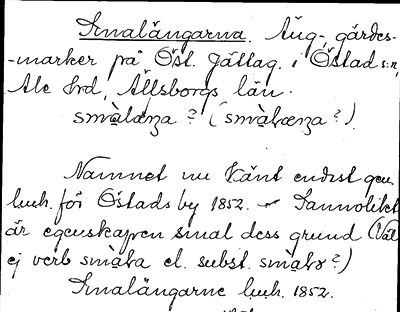 Smalängarna. Äng- gärdes-
-marker på Öst. Jättag. i Östad s:n,
Ale hrd, Älfsborgs län.
smàlæŋa? (smàlæŋa?).
Namnet nu känt endast gen.
luh. för Östads by 1852. Sannolikt
är egenskapen smal dess grund (Väl
ej verb smàla el. subst. smàlə?)
Smalängarne luh. 1852.